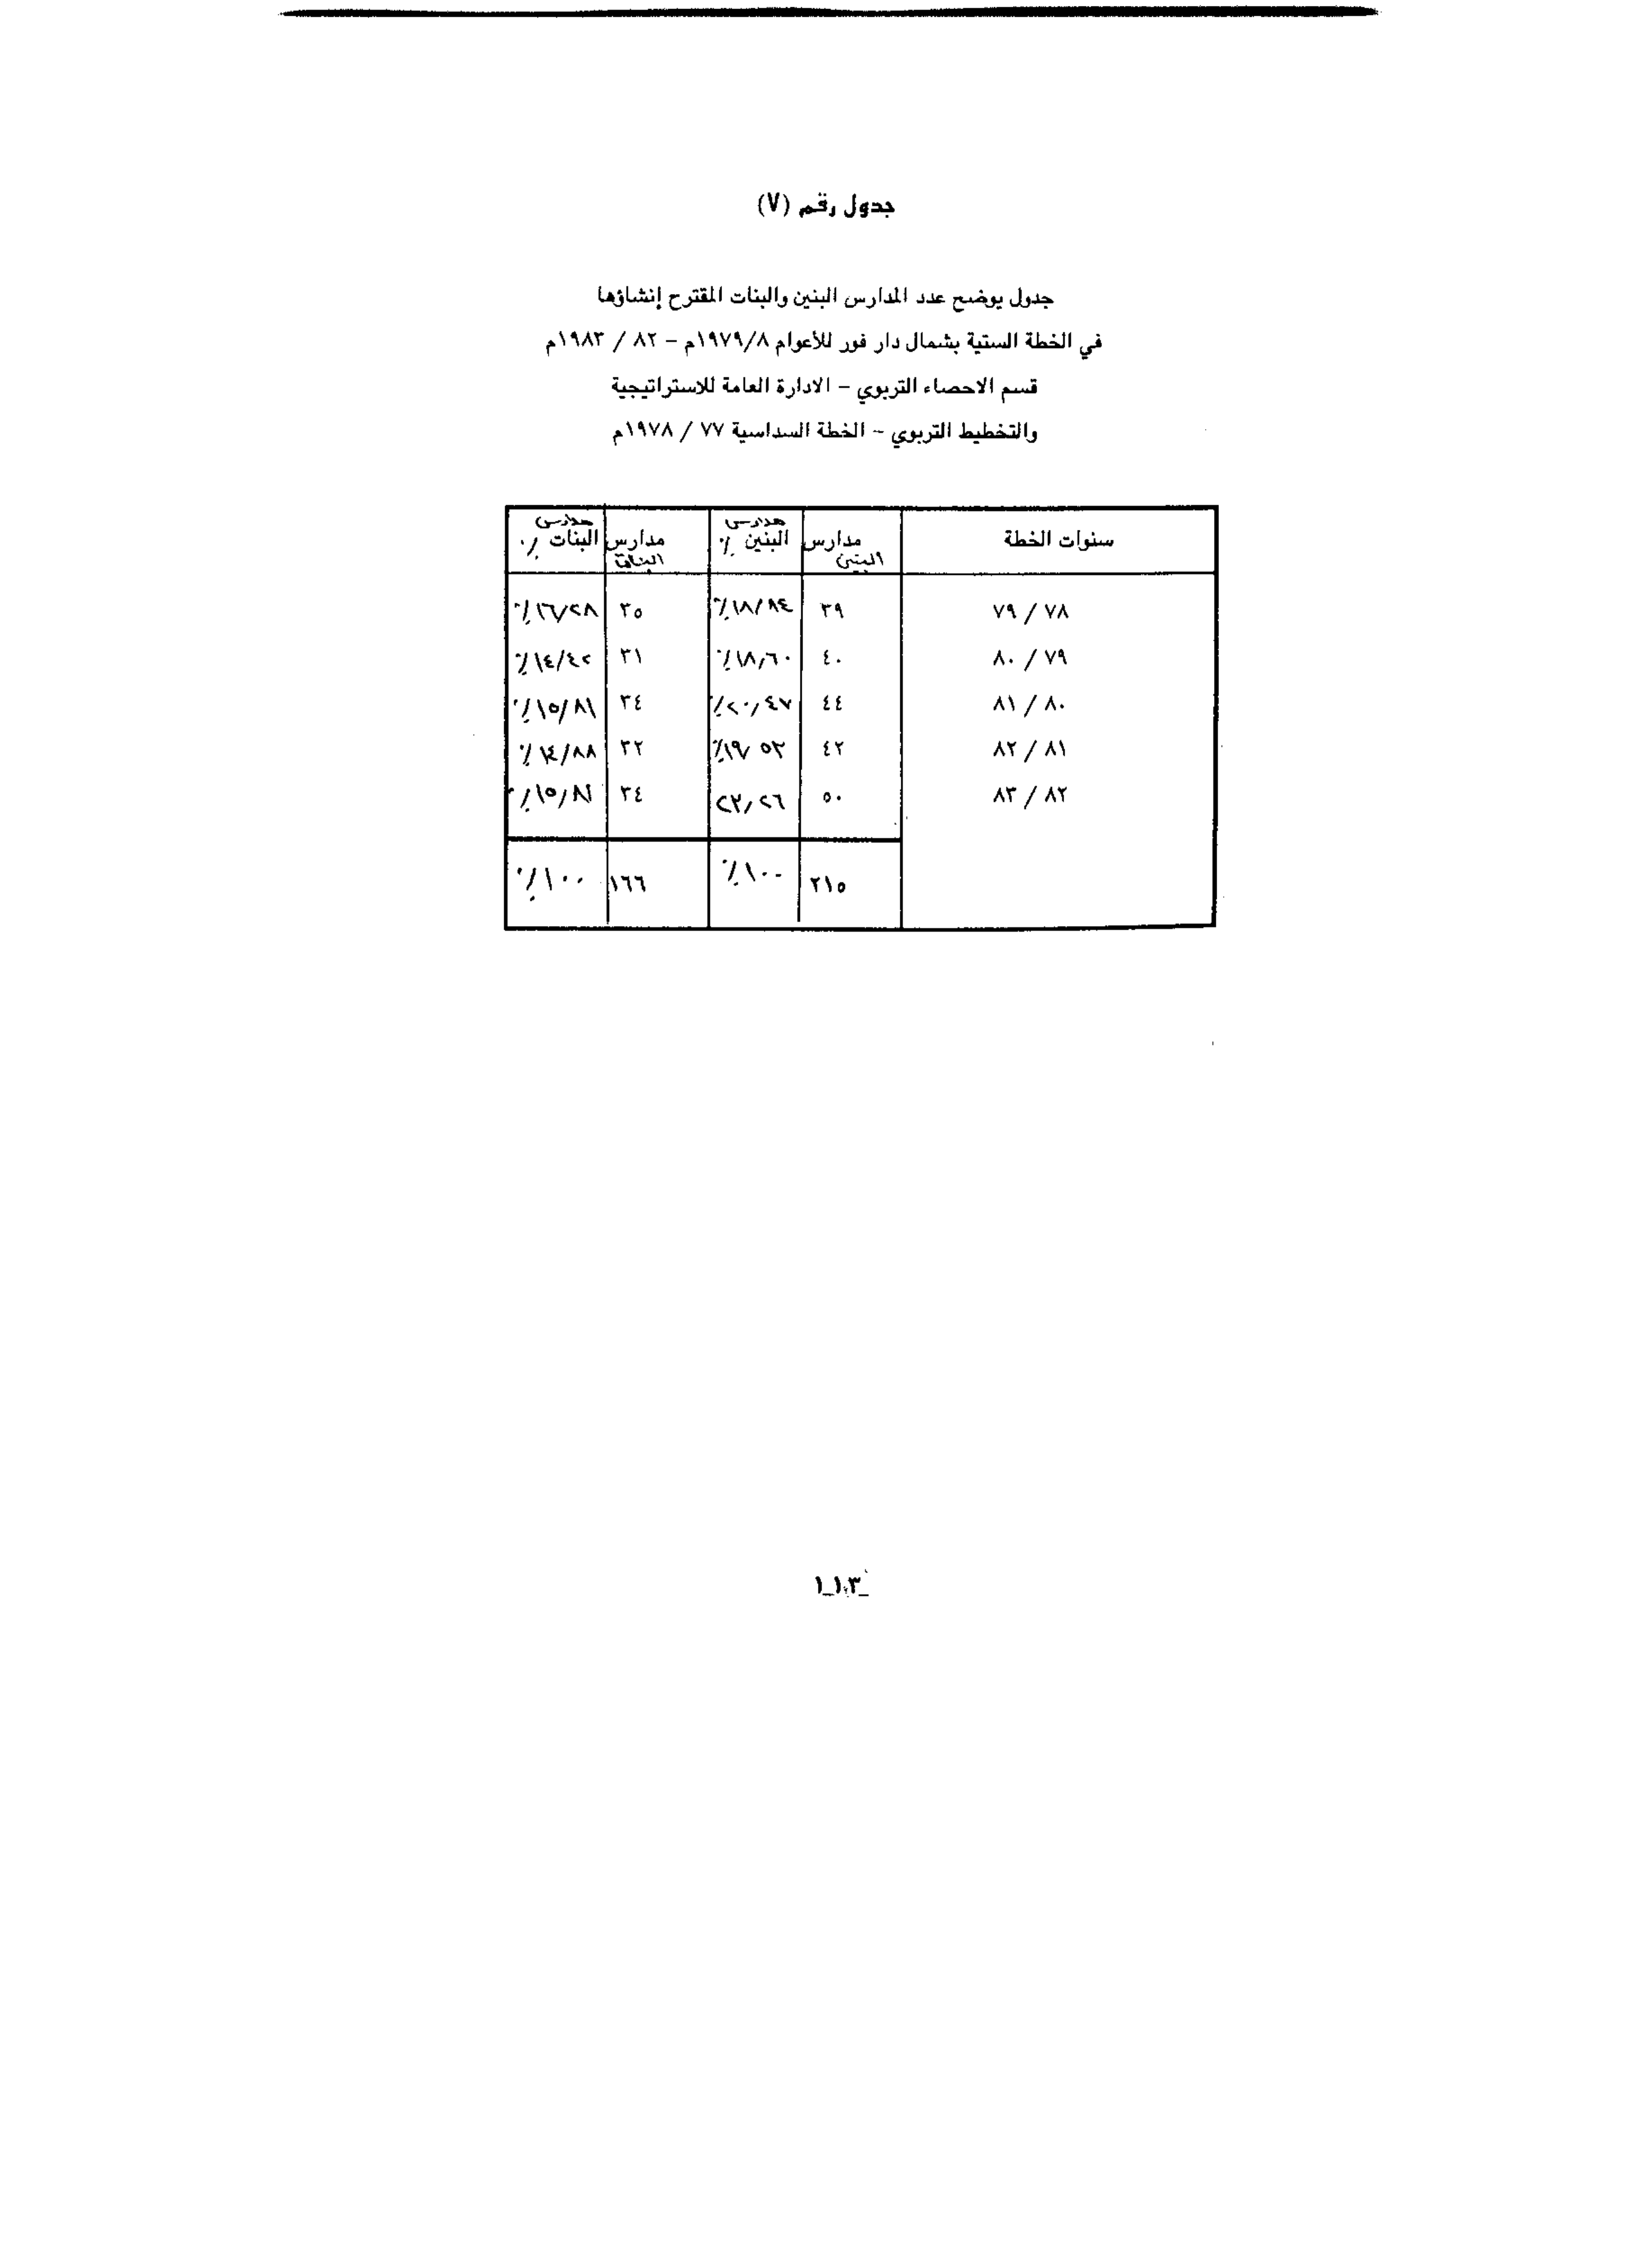 جدول رقم (٧)
جدول يوضح عدد المدارس البنين والبنات المقترح إنشاؤها
في الخطة الستية بشمال دار فور للأعوام ١٩٧٩/٨م - ٨٢ / ١٩٨٣م
قسم الاحصاء التربوي - الادارة العامة للاستراتيجية
والتخطيط التربوي - الخطة السداسية ٧٧ / ١٩٧٨م
سنوات الخطة مدارس البنين مدارس البنين ٪ مدارس البنات مدارس البنات ٪
٧٨ / ٧٩ ٣٩ ١٨/٨٤٪ ٣٥ ١٦/٢٨٪
٧٩ / ٨٠ ٤٠ ١٨,٦٠٪ ٣١ ١٤/٤٢٪
٨٠ / ٨١ ٤٤ ٢٠,٤٧٪ ٣٤ ١٥/٨١٪
٨١ / ٨٢ ٤٢ ١٩/٥٣٪ ٣٢ ١٤/٨٨٪
٨٢ / ٨٣ ٥٠ ٢٣,٢٦ ٣٤ ١٥/٨١٪
٢١٥ ١٠٠٪ ١٦٦ ١٠٠٪
١١٣